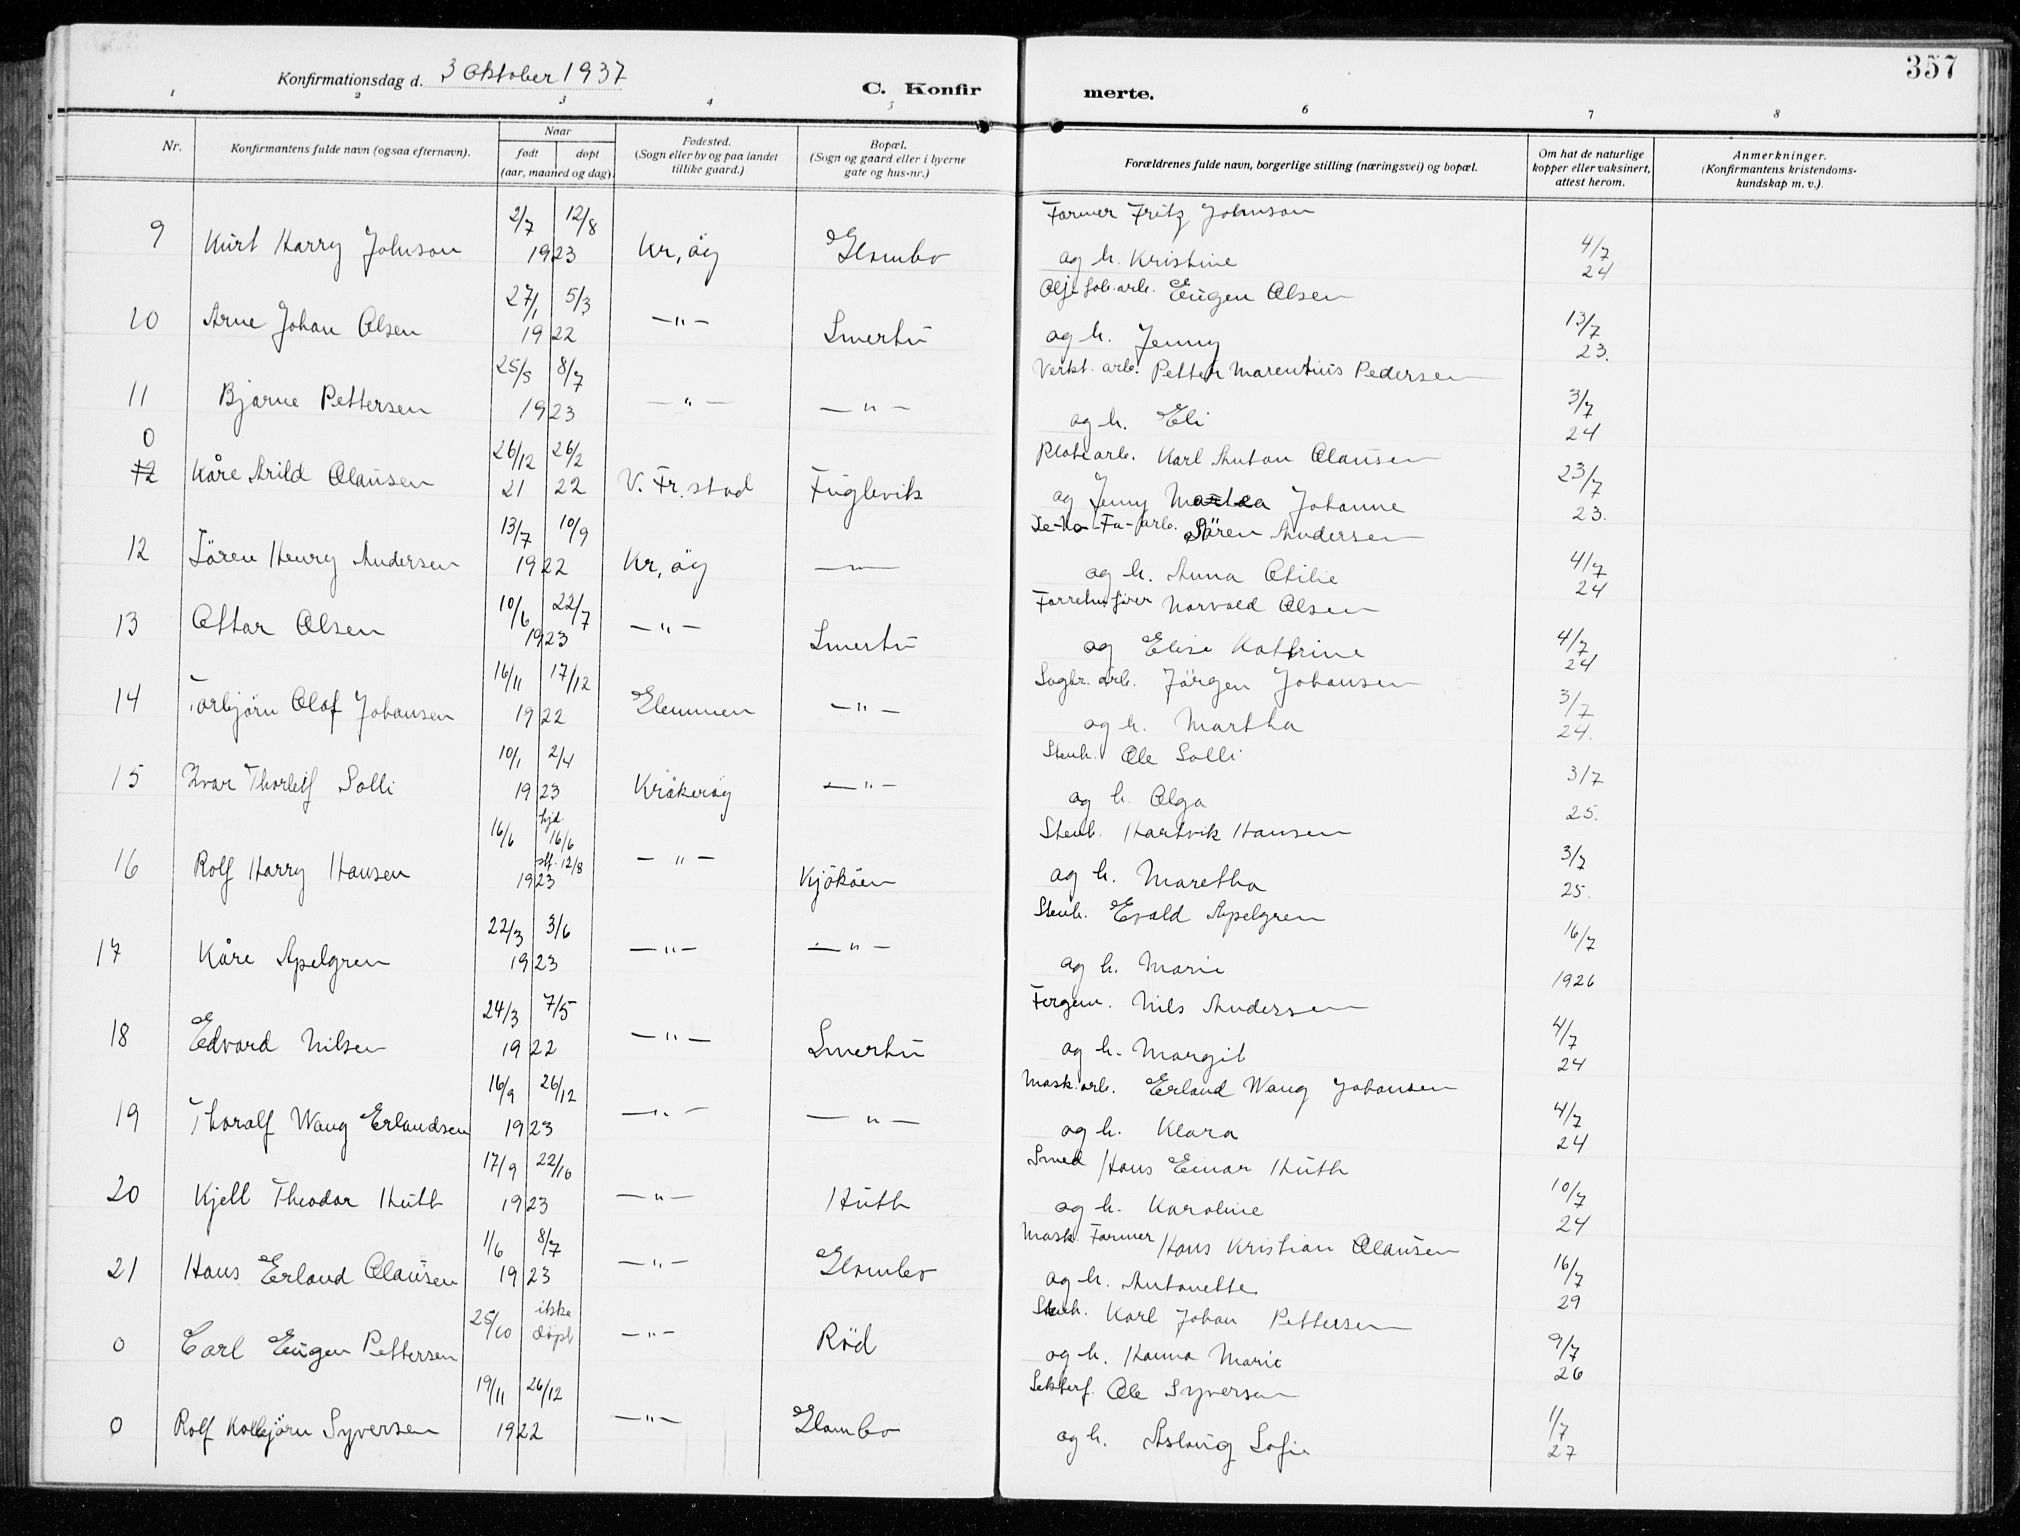 357
Konfirmationsdag d. 3 Oktober 1937
C. Konfirmerte.
1 2 3 4 5 6 7 8
Nr. Konfirmantens fulde navn (ogsaa efternavn). Naar født døpt (aar, maaned og dag). Fødested. (Sogn eller by og paa landet tillike gaard.) Bopæl. (Sogn og gaard eller i byerne gate og hus-nr.) Forældrenes fulde navn, borgerlige stilling (næringsvei) og bopæl. Om hat de naturlige kopper eller vaksinert, attest herom. Anmerkninger. (Konfirmantens kristendoms-kundskap m. v.).
2/7 12/8 Former Fritz Johnson
9 Kurt Harry Johnson 1923 Kr,öy Glombo og h. Kristine 4/7 24
27/1 5/3 Oljefab.arb. Eugen Olsen
10 Arne Johan Olsen 1922 —"— Smertu og h. Jenny 13/7 23.
25/5 8/7 Verkt. arb. Petter Marentius Pedersen
11 Bjarne Pettersen 1923 —"— —"— og h. Eli 3/7 24
0
26/12 26/2 Platearb. Karl Anton Olausen
12 Kåre Arild Olausen 21 22 V. Fr.stad Fuglevik og Jenny Johanne 23/7 23.
13/7 10/9 De-No-Fa-arb. Sören Andersen
12 Sören Henry Andersen 1922 Kr,öy —"— og h. Anna Otilie 4/7 24
10/6 22/7 Forretn.fører Norvald Olsen
13 Ottar Olsen 1923 —"— Smertu og Elise Kathrine 4/7 24
16/11 17/12 Sagbr. arb. Jörgen Johansen
14 Torbjörn Olaf Johansen 1922 Glemmen —"— og h. Martha 3/7 24.
10/1 2/4 Stenh. Ole Solli
15 Ivar Thorleif Solli 1923 Kråkeröy —"— og h. Olga 3/7 25.
16/6 hjd. 16/6 stf. 12/8 Stenh. Hartvik Hansen
16 Rolf Harry Hansen 1923 —"— Kjököen og h. Maretha 3/7 25.
22/3 3/6 Stenh. Evald Apelgren
17 Kåre Apelgren 1923 —"— —"— og h. Marie 16/7 1926
24/3 7/5 Fergem. Nils Andersen
18 Edvard Nilsen 1922 —"— Smertu og h. Margit 4/7 24
16/9 26/12 Mask.arb. Erland Wang Johansen
19 Thoralf Wang Erlandsen 1923 —"— —"— og h. Klara 4/7 24
17/9 22/10 Smed Hans Einar Huth
20 Kjell Theodor Huth 1923 —"— Huth og h. Karoline 10/7 24
1/6 8/7 Mask. Former Hans Kristian Olausen
21 Hans Erland Olausen 1923 —"— Glombo og h. Antonette 16/7 29
25/10 ikke döpt Stenh. Karl Johan Pettersen
0 Carl Eugen Pettersen —"— Röd og h. Hanna Marie 9/7 26
19/11 26/12 Ole Syversen
0 Rolf Kolbjörn Syversen 1922 —"— Glombo og h. Aslaug Sofie 1/7 27